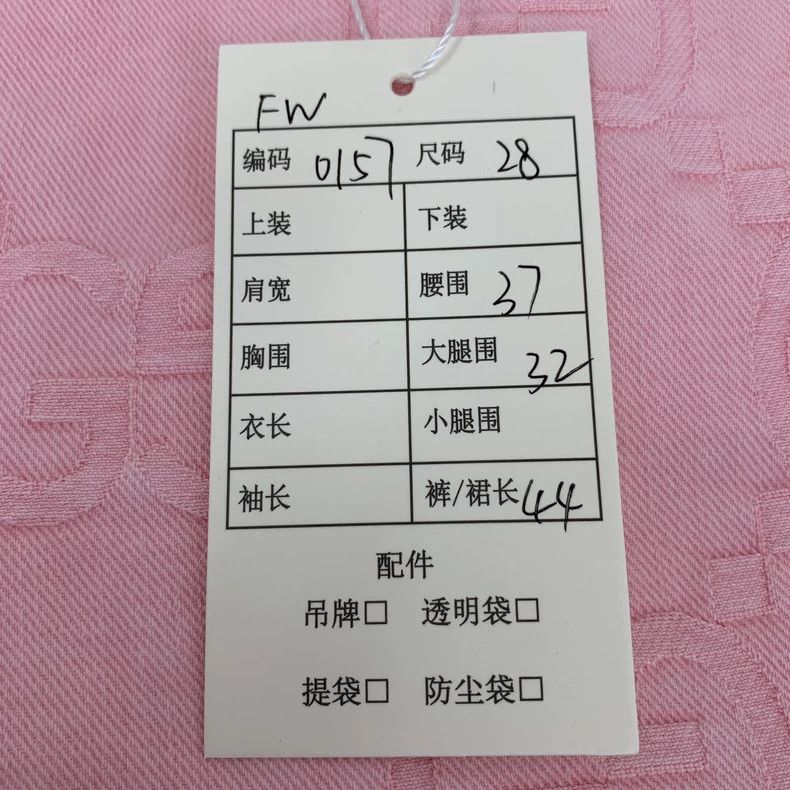 FW
编码 0157 尺码 28
上装 下装
肩宽 腰围 37
胸围 大腿围 32
衣长 小腿围
袖长 裤/裙长 44
配件
吊牌□ 透明袋□
提袋□ 防尘袋□